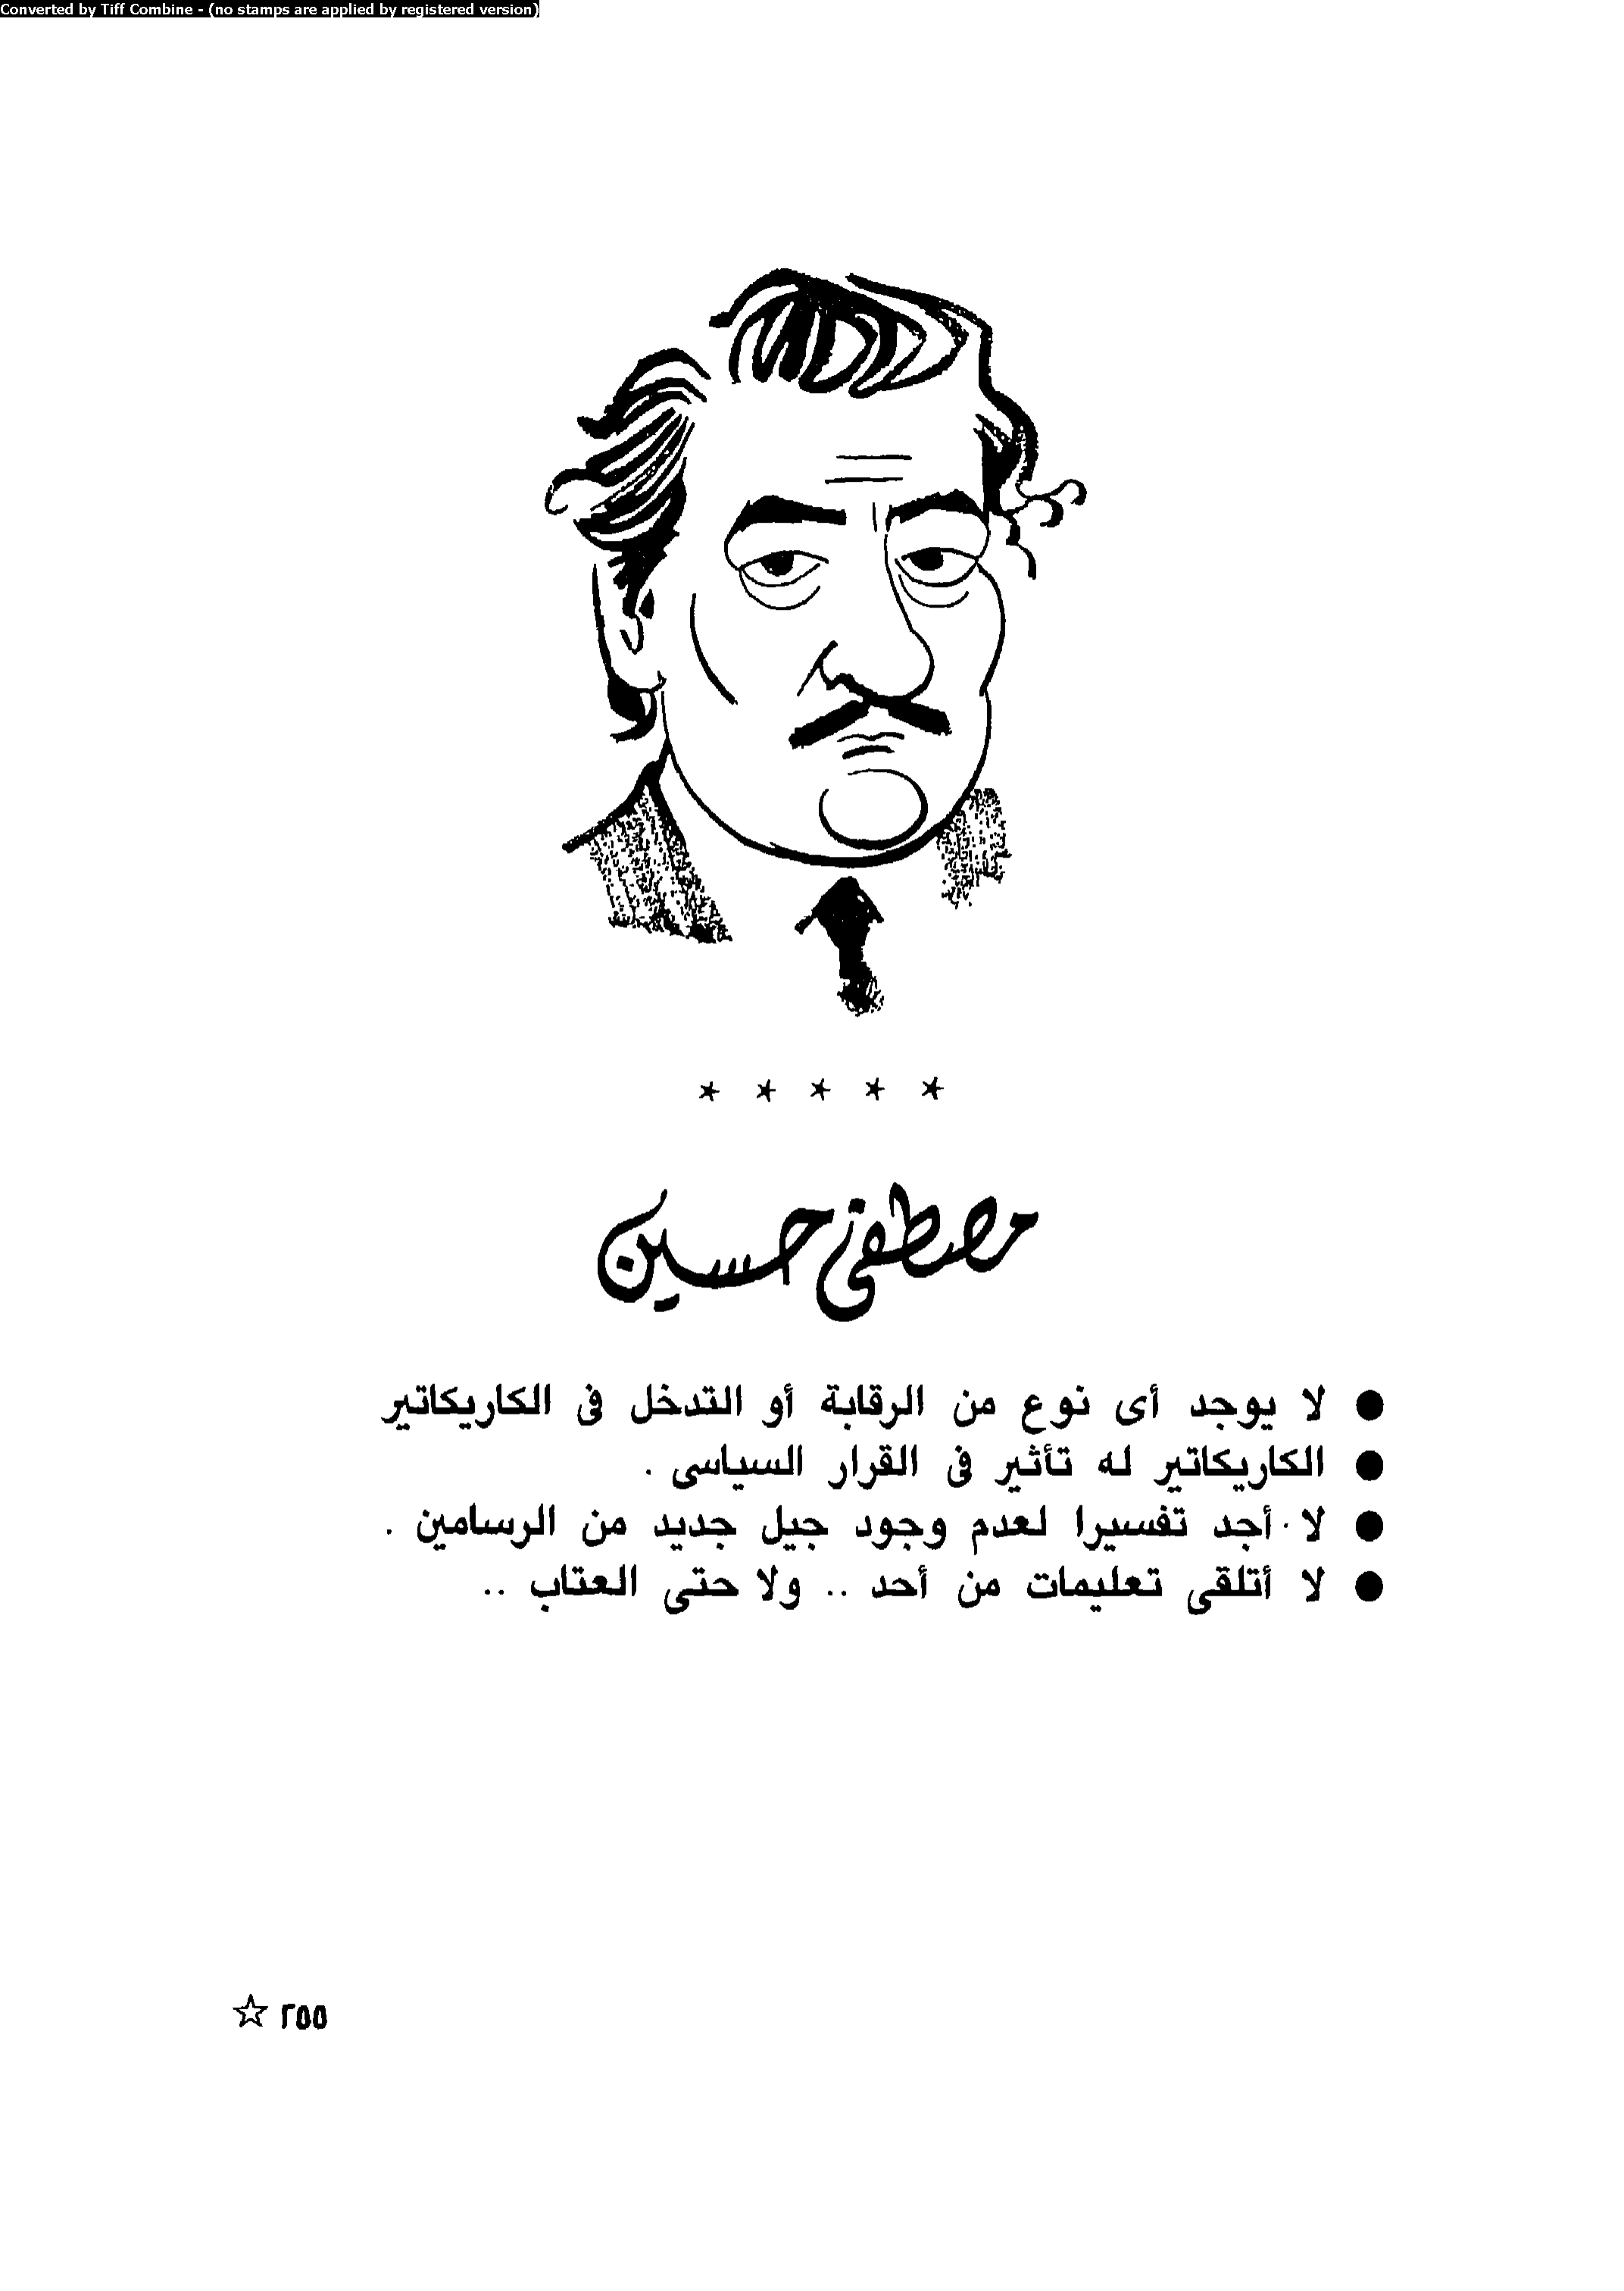 Converted by Tiff Combine - (no stamps are applied by registered version)
* * * * *
مصطفى حسين
● لا يوجد أى نوع من الرقابة أو التدخل فى الكاريكاتير
● الكاريكاتير له تأثير فى القرار السياسى .
● لا أجد تفسيرا لعدم وجود جيل جديد من الرسامين .
● لا أتلقى تعليمات من أحد .. ولا حتى العتاب ..
☆ ٢٥٥